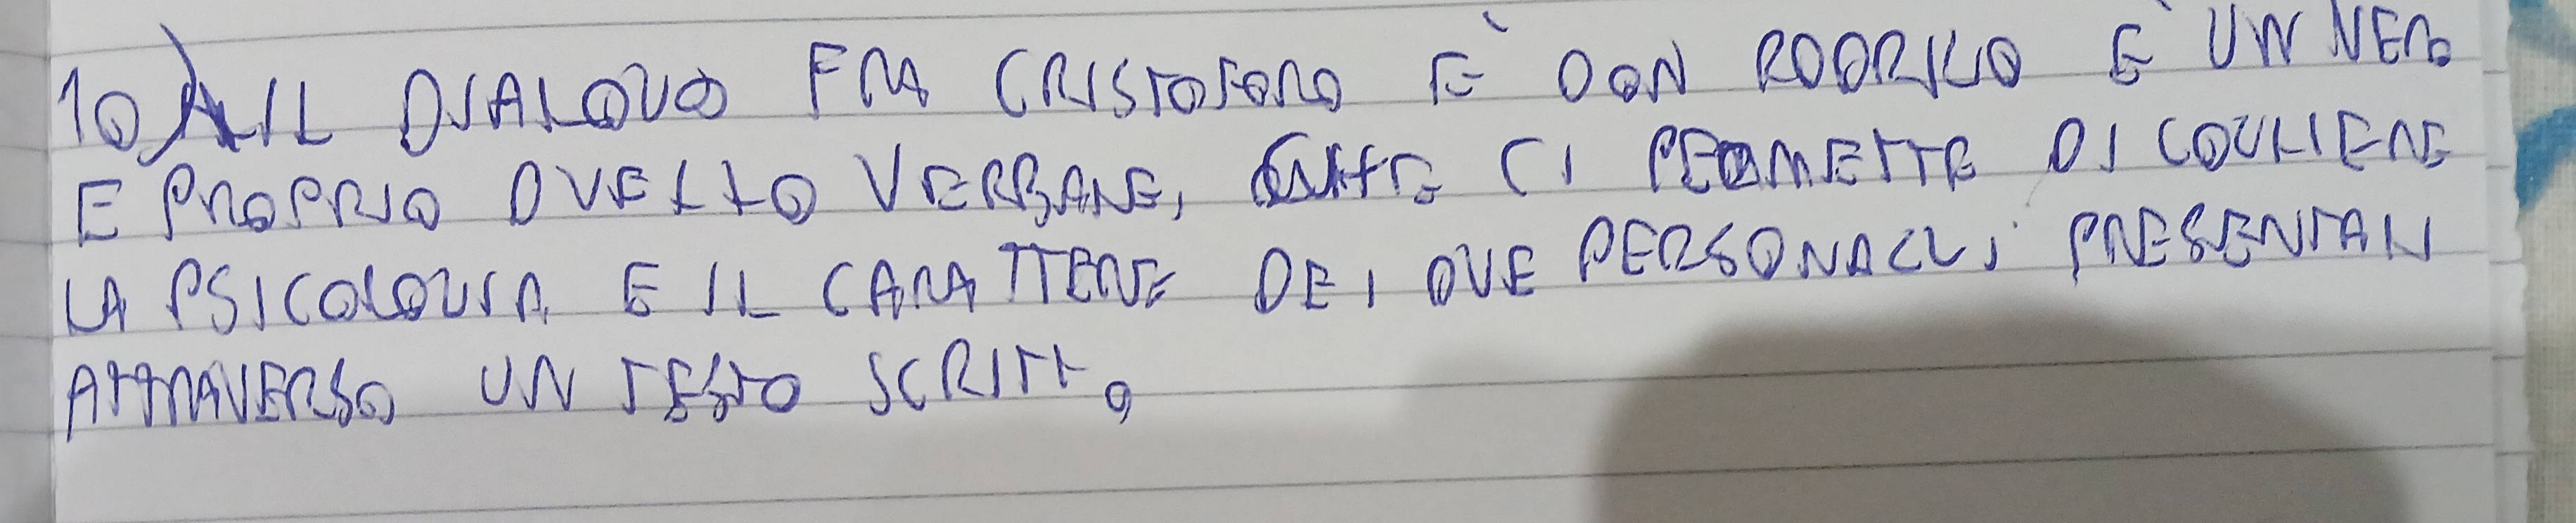 10) IL DIALOGO FRA CRISTOFORO È DON RODRIGO È UN VERO
E PROPRIO DUELLO VERBALE, CHE CI PERMETTE DI COGLIERE
LA PSICOLOGIA E IL CARATTERE DEI DUE PERSONAGGI PRESENTATI
ATTRAVERSO UN TESTO SCRITTO